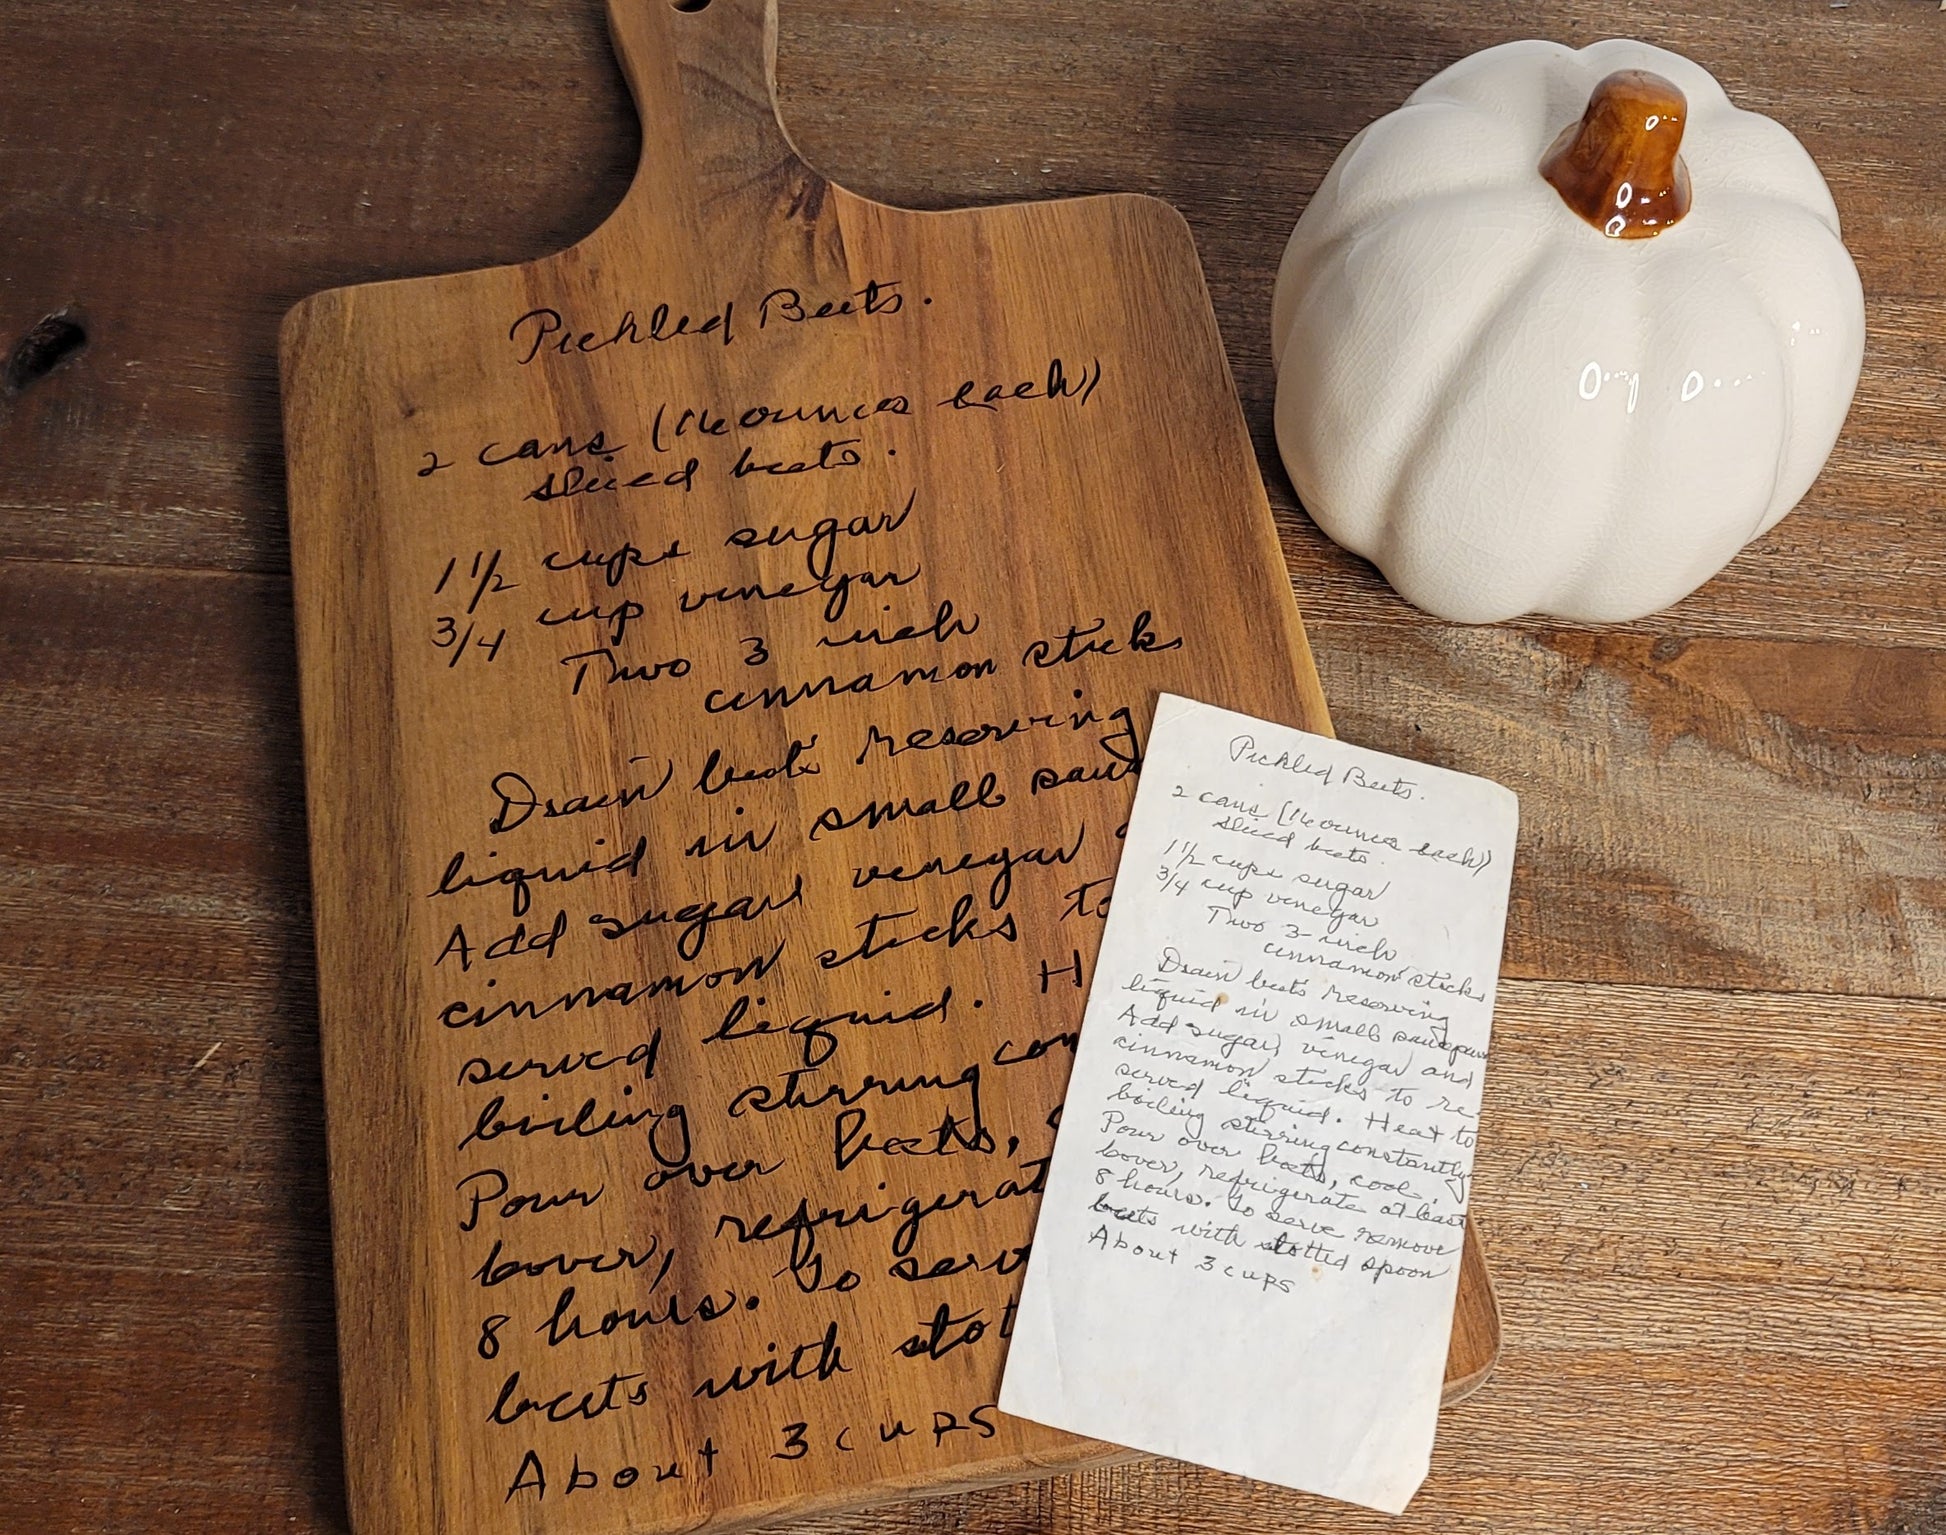 Pickled Beets.
2 cans (16 ounces each)
sliced beets.
1 1/2 cups sugar
3/4 cup vinegar
Two 3 inch
cinnamon sticks
Drain beets reserving
liquid in small sauc
Add sugar, vinegar
cinnamon sticks to
served liquid. H
boiling stirring con
Pour over beets,
cover, refrigerat
8 hours. To serv
beets with slot
About 3 cups
Pickled Beets.
2 cans (16 ounces each)
sliced beets.
1 1/2 cups sugar
3/4 cup vinegar
Two 3-inch
cinnamon sticks
Drain beets reserving
liquid in small saucepan
Add sugar, vinegar and
cinnamon sticks to re-
served liquid. Heat to
boiling stirring constantly
Pour over beets, cool.
cover, refrigerate at least
8 hours. To serve remove
beets with slotted spoon
About 3 cups